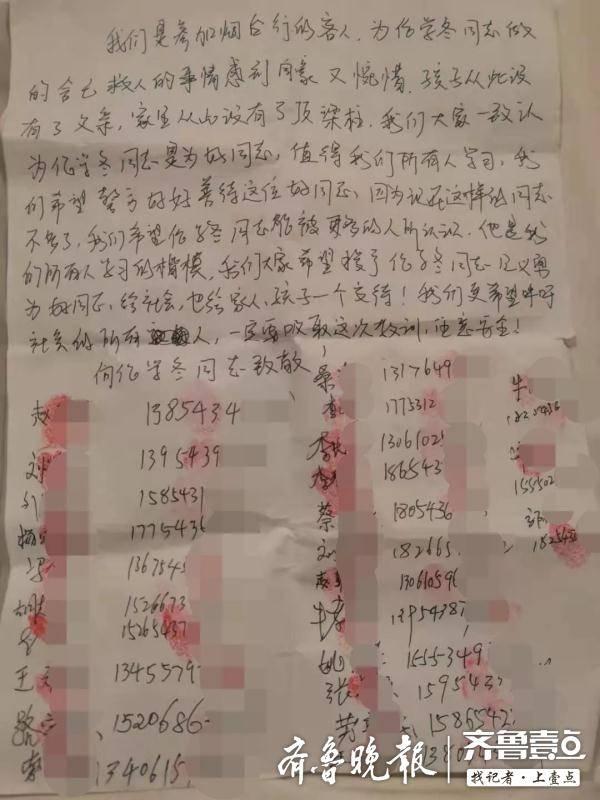 我们是参加烟台行的客人,为伦学冬同志做
的舍己救人的事情感到自豪又惋惜,孩子从此没
有了父亲,家里从此没有了顶梁柱,我们大家一致认
为伦学冬同志是为好同志,值得我们所有人学习,我
们希望警方好好善待这位好同志,因为现在这样的同志
不多了,我们希望伦学冬同志能被更多的人所认识,他是我
们所有人学习的楷模,我们大家希望授予伦学冬同志见义勇
为好同志,给社会,也给家人,孩子一个交待!我们更希望呼吁
社会的所有人,一定要吸取这次教训,注意安全!
向伦学冬同志致敬
赵 1385434
刘 1395439
1585431
杨 1775436
1367545
胡 1526673
15265437
王 1345579
1520686
1340615
桑 1317649
1775312
李 1306102
186543
蔡 1805436
刘 182665
13061059
1395438
姚 1555349
张 159543
黄 1586542
1380
牛
155502
齐鲁晚报 齐鲁壹点
找记者·上壹点